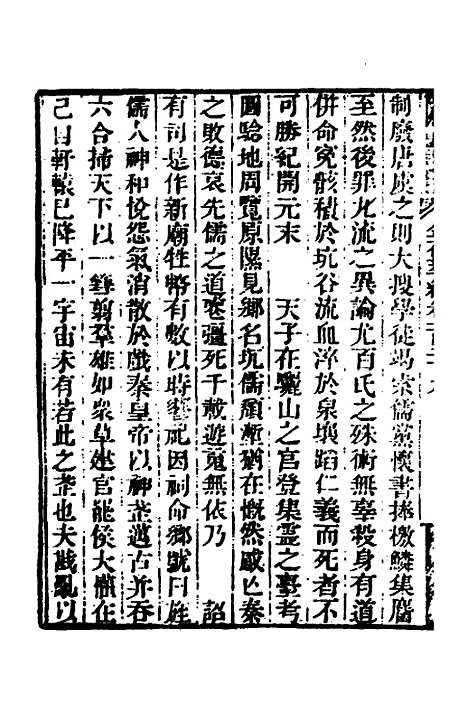 制廢唐虞之則大搜學徒竭索儒黨懷書捧檄鱗集麕
至然後罪九流之異論尤百氏之殊術無辜殺身有道
併命冤骸積於坑谷流血滓於泉壤蹈仁義而死者不
可勝紀開元末 天子在驪山之宮登集靈之臺考
圖驗地周覽原隰見鄉名坑儒頹壍猶在慨然感亡秦
之敗德哀先儒之道喪彊死千載遊䰟無依乃 詔
有司是作新廟牲幣有數以時饗祀因祠命鄉號曰旌
儒人神和悅怨氣消散於戲秦皇帝以神武邁古并吞
六合捶天下以一鋒剪羣雄如衆草建官罷侯大權在
己自軒轅已降平一宇宙未有若此之盛也夫戡亂以